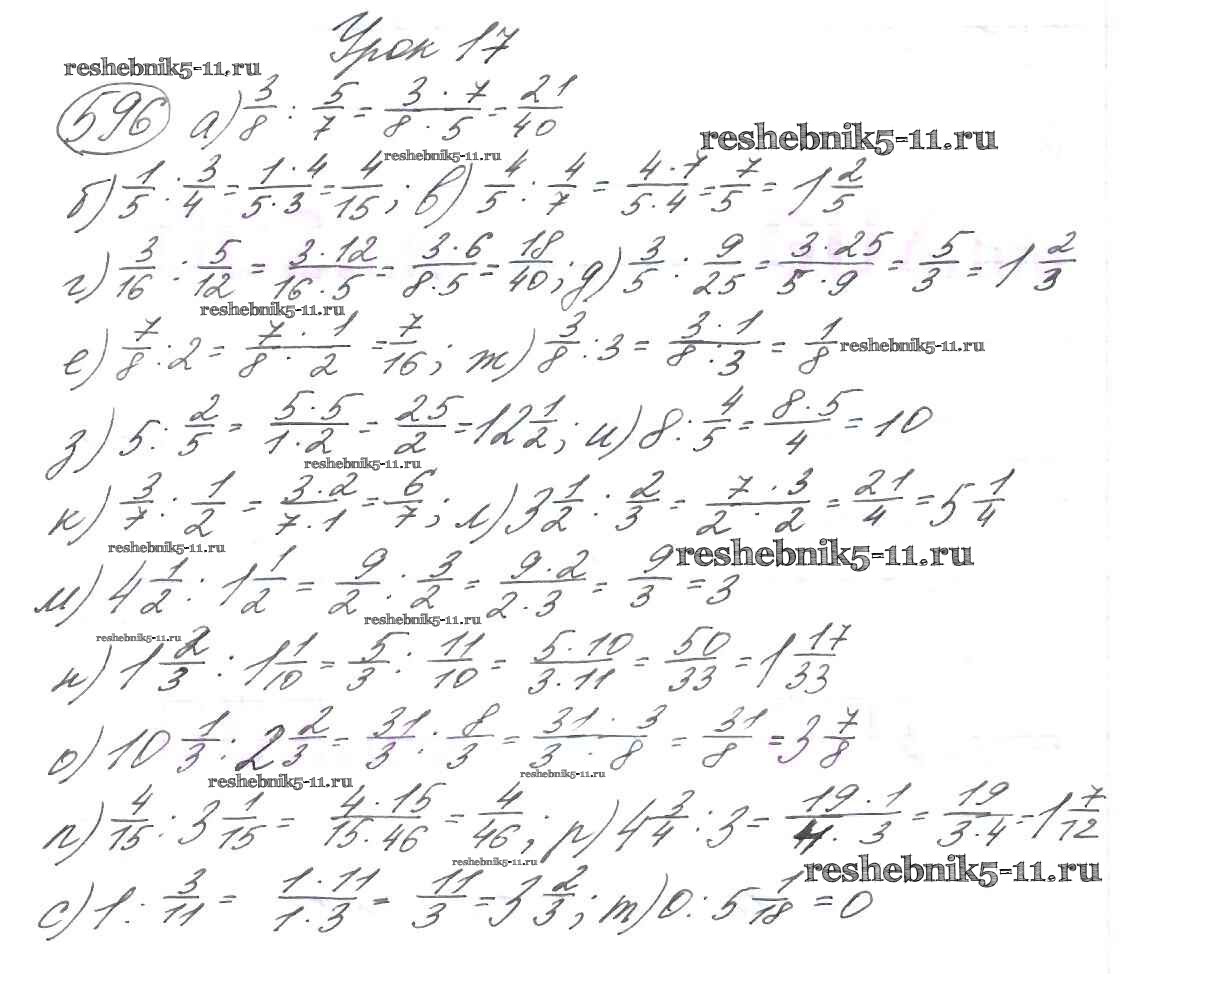 Урок 17
reshebnik5-11.ru
596 а) 3/8 : 5/7 = 3·7/8·5 = 21/40
reshebnik5-11.ru
reshebnik5-11.ru
б) 1/5 : 3/4 = 1·4/5·3 = 4/15; в) 4/5 : 4/7 = 4·7/5·4 = 7/5 = 1 2/5
г) 3/16 : 5/12 = 3·12/16·5 = 3·6/8·5 = 18/40; д) 3/5 : 9/25 = 3·25/5·9 = 5/3 = 1 2/3
reshebnik5-11.ru
е) 7/8 : 2 = 7·1/8·2 = 7/16; ж) 3/8 : 3 = 3·1/8·3 = 1/8
reshebnik5-11.ru
з) 5 : 2/5 = 5·5/1·2 = 25/2 = 12 1/2; и) 8 : 4/5 = 8·5/4 = 10
reshebnik5-11.ru
к) 3/7 : 1/2 = 3·2/7·1 = 6/7; л) 3 1/2 : 2/3 = 7·3/2·2 = 21/4 = 5 1/4
reshebnik5-11.ru
reshebnik5-11.ru
м) 4 1/2 : 1 1/2 = 9/2 : 3/2 = 9·2/2·3 = 9/3 = 3
reshebnik5-11.ru
reshebnik5-11.ru
н) 1 2/3 : 1 1/10 = 5/3 : 11/10 = 5·10/3·11 = 50/33 = 1 17/33
о) 10 1/3 : 2 2/3 = 31/3 : 8/3 = 31·3/3·8 = 31/8 = 3 7/8
reshebnik5-11.ru
reshebnik5-11.ru
п) 4/15 : 3 1/15 = 4·15/15·46 = 4/46; р) 4 3/4 : 3 = 19·1/4·3 = 19/3·4 = 1 7/12
reshebnik5-11.ru
reshebnik5-11.ru
с) 1 : 3/11 = 1·11/1·3 = 11/3 = 3 2/3; т) 0 : 5 1/18 = 0